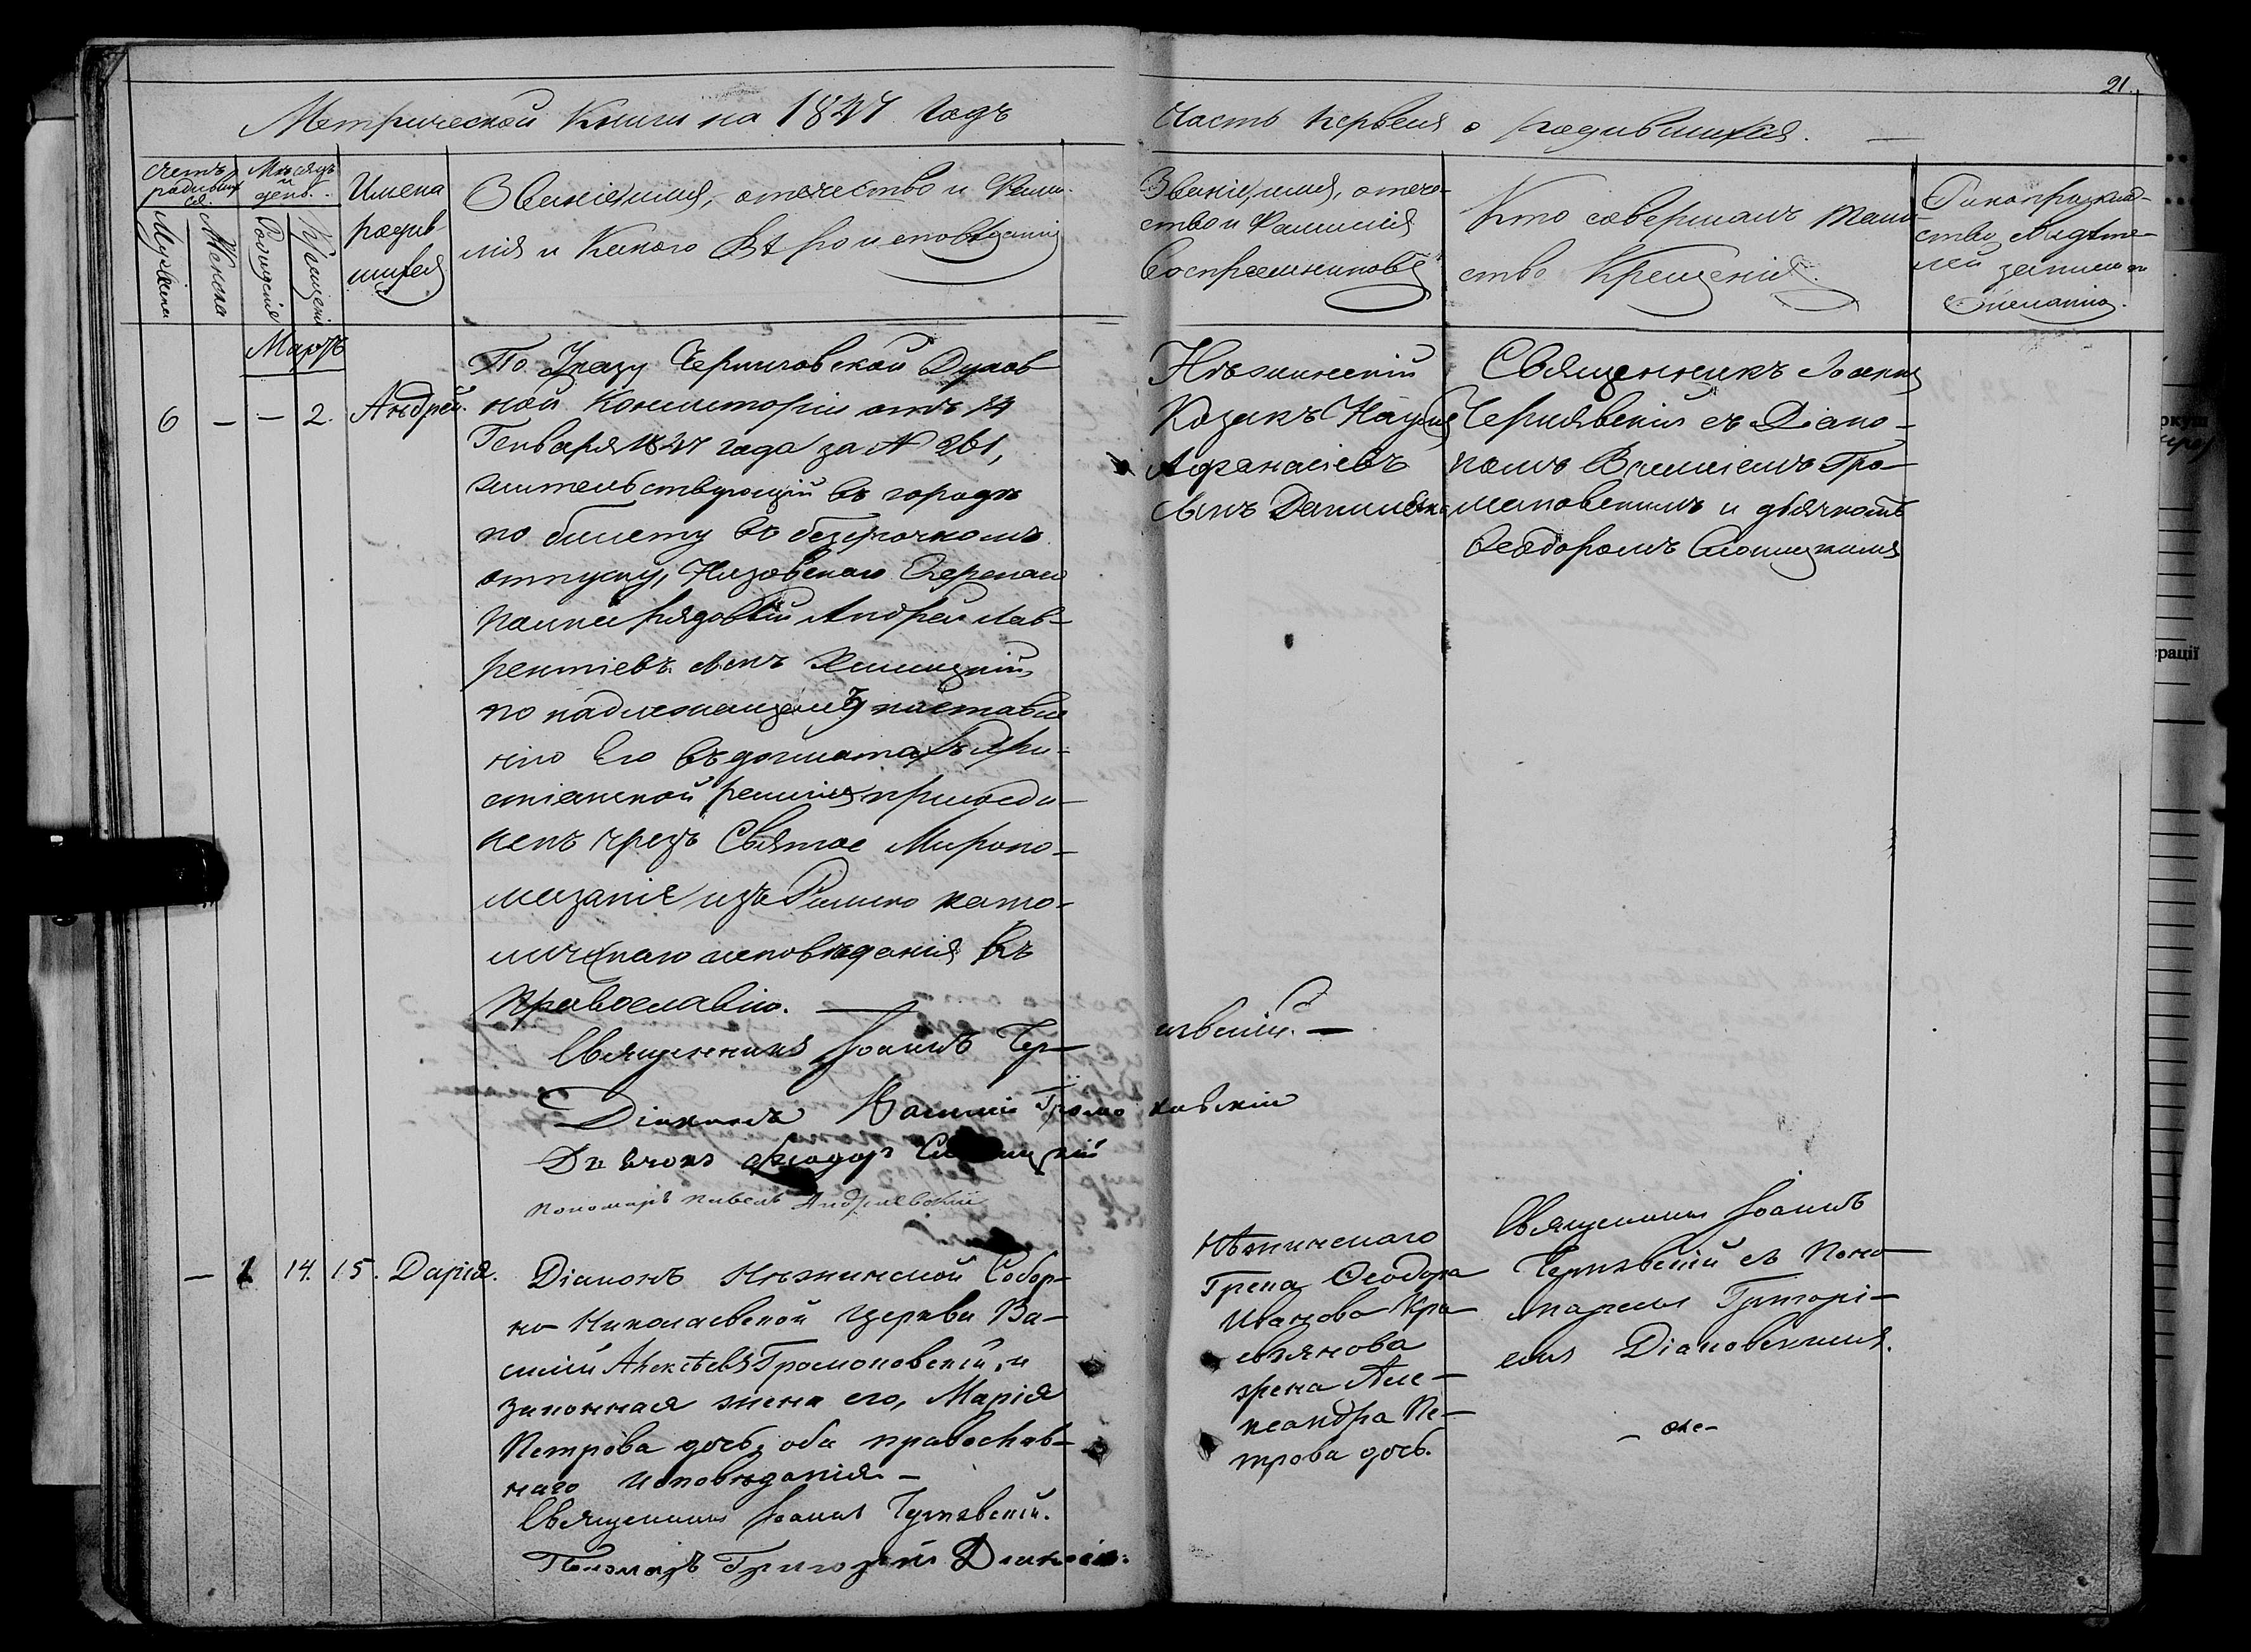 21.
Метрической Книги на 1847 годъ
Часть первая о родившихся.
счетъ родившихся.
Мужеска
Женска
Мѣсяцъ и день.
Рождение
Крещение
Имена
родив-
шихся
Звание, имя, отечество и Фами-
лия и какого вѣроисповедания
Звание, имя, отече-
ство и Фамилия
Воспреемниковъ
Кто совершалъ таин-
ство Крещения
Рукоприклад-
ство свидѣте-
лей записи
Мартъ
6 - - 2. Андрей.
По Указу Черниговской Духов-
ной Консистории отъ 14
Генваря 1847 года за № 261,
жительствующий въ городѣ
по билету въ безсрочномъ
отпуску, Низовского Егерского
полка рядовый Андрей Лав-
рентиевъ сынъ
по надлежащему наставле
нию Его въ догматахъ Хри-
стианской религии присоеди-
ненъ чрезъ Святое Миропо-
мазание изъ Римско като-
лическаго исповѣдания къ
Православию.
Священникъ Иоаннъ Чер-
нявский.
Диаконъ Василий Громо ковский
Дьячокъ Феодоръ
Пономарь Павелъ Андриевский
Нѣжинский
Козакъ Наумъ
Афанасиевъ
сынъ
Священникъ Иоаннъ
Чернявский съ Диако-
номъ Василиемъ Гро-
маковскимъ и дьячкомъ
Феодоромъ
- 1 14. 15. Дария.
Диаконъ Нѣжинской Собор-
но Николаевской церкви Ва-
силий Алексѣевъ Громоковский, и
законная жена его, Мария
Петрова дочь, оба православ-
наго исповѣдания. -
Священникъ Иоаннъ Чернявский.
Пономарь Григорий
Нѣжинского
Грека Феодора
Иванова
Але-
ксандра Пе-
трова дочь.
Священникъ Иоаннъ
Чернявский съ Поно-
маремъ Григори-
емъ Диаковскимъ.